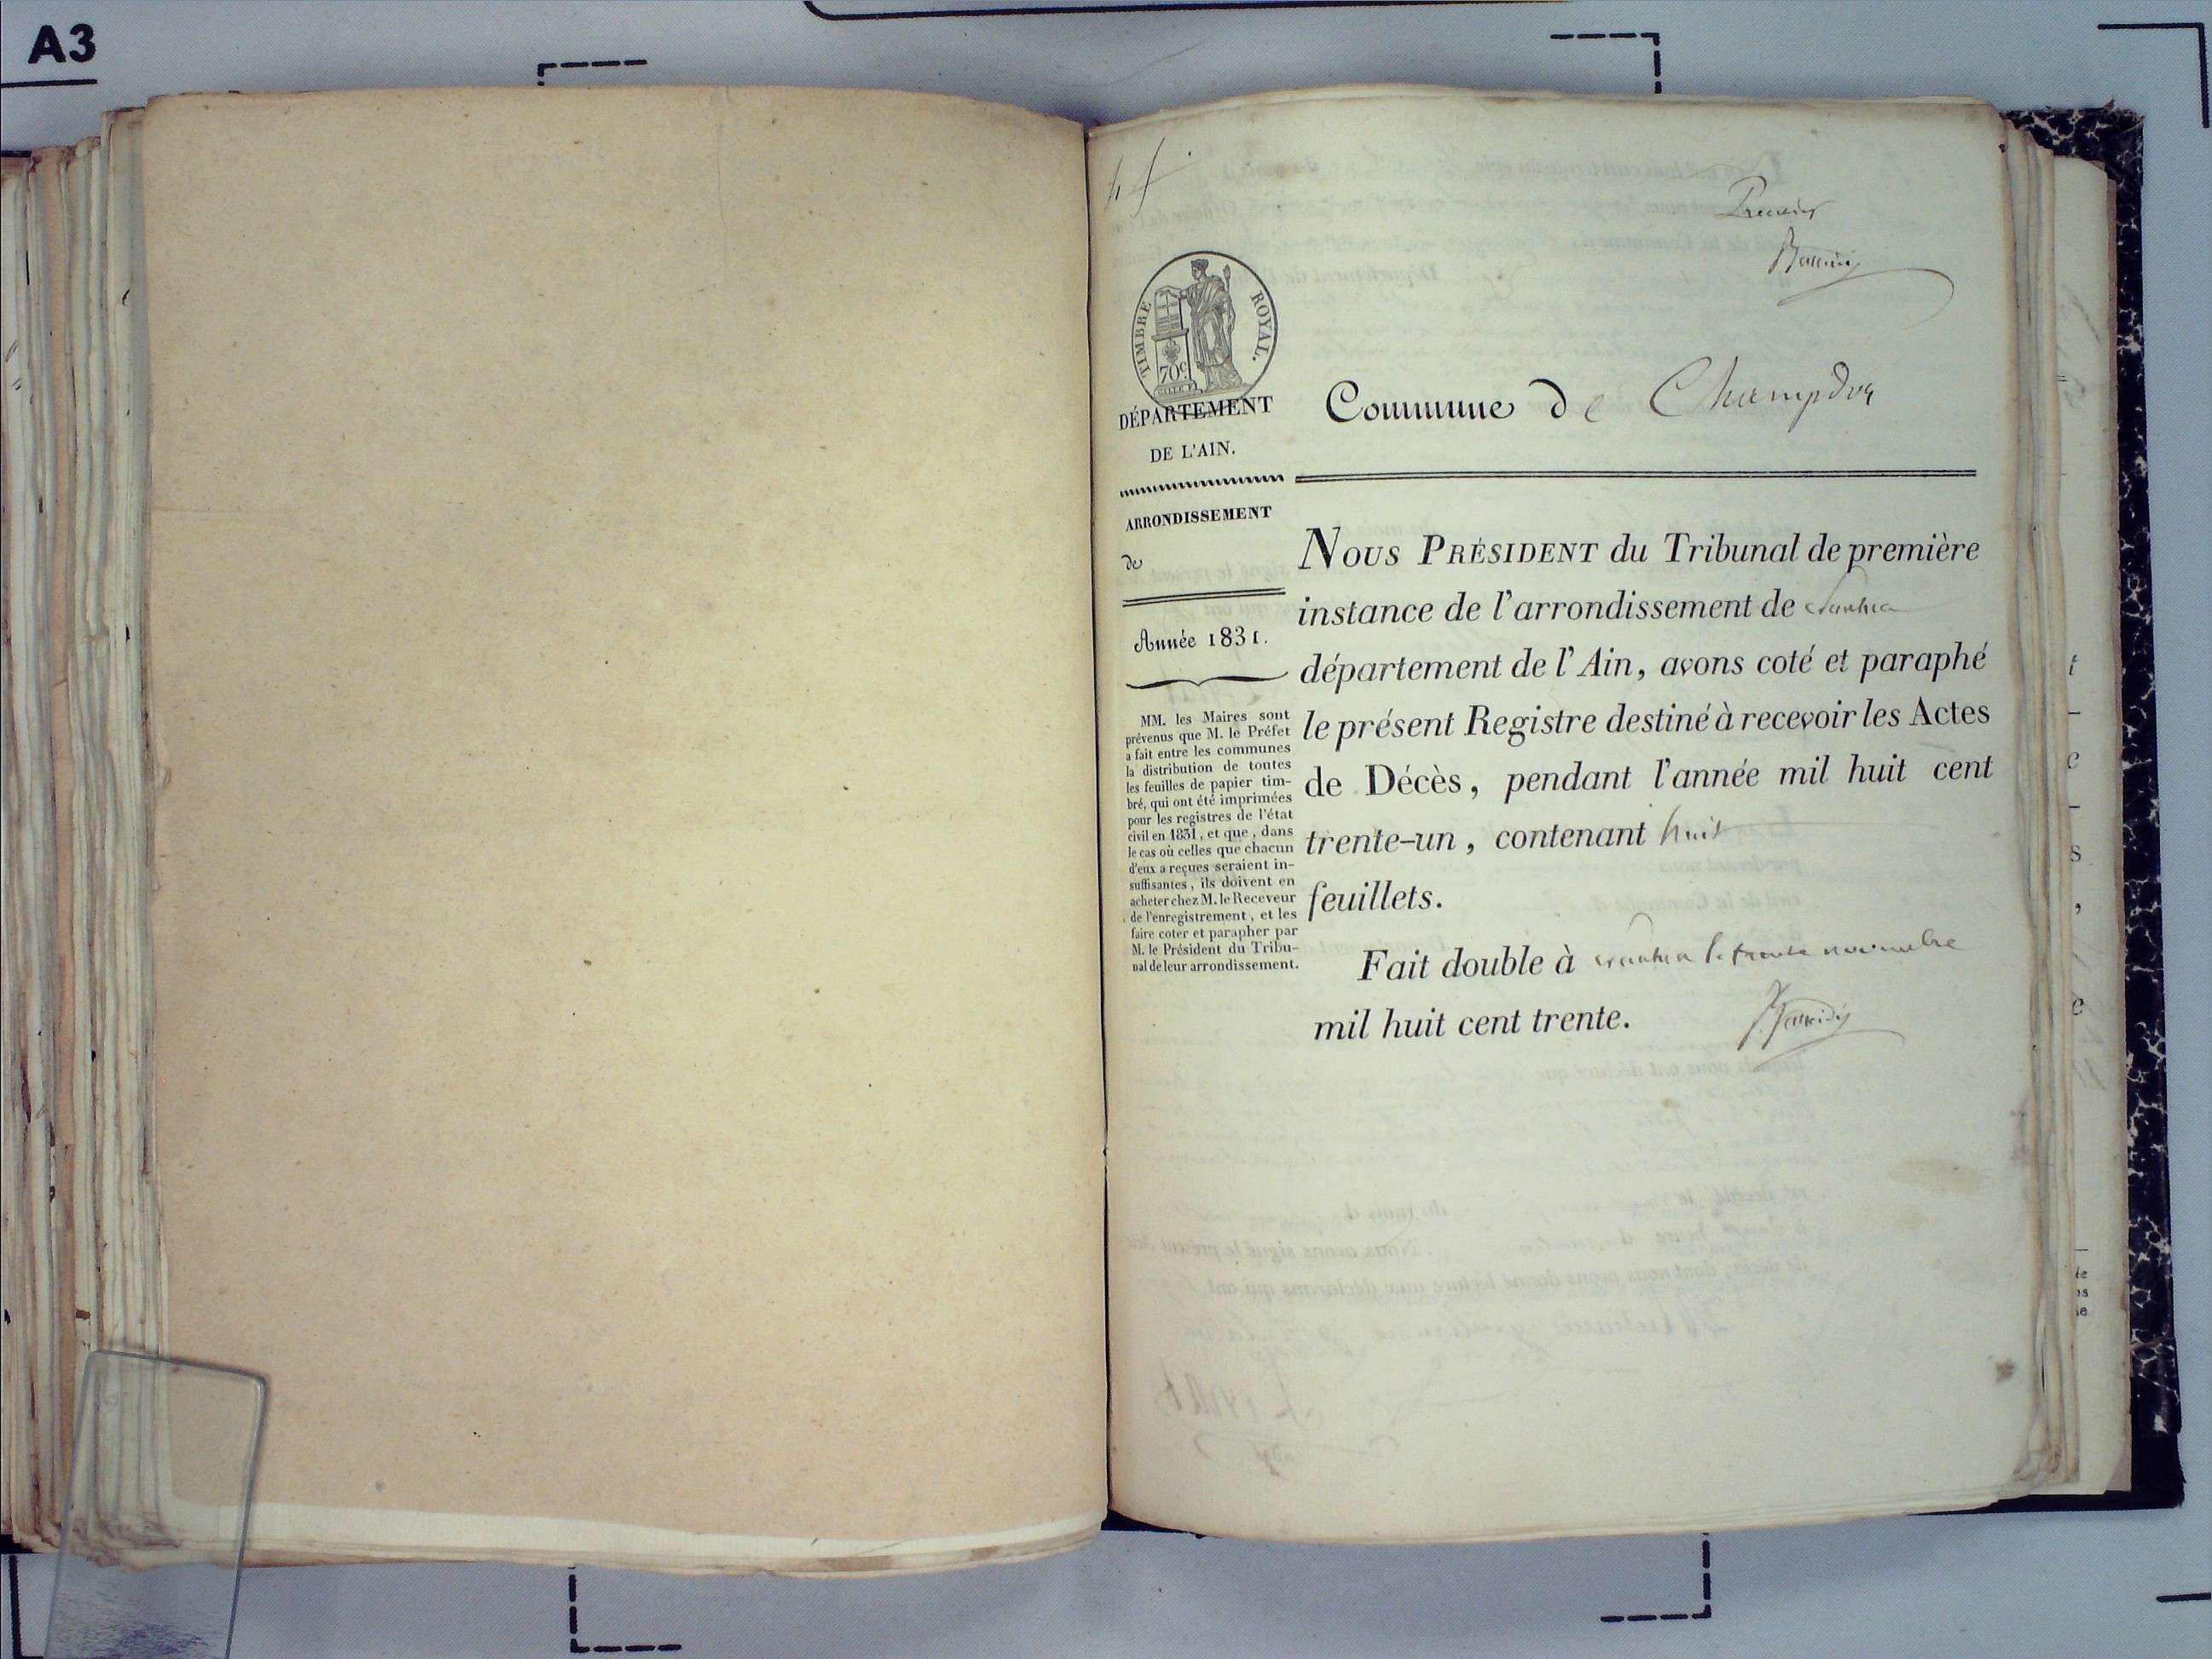 A3
Premier
TIMBRE ROYAL.
70c
DÉPARTEMENT
DE L'AIN.
Commune de Champdor
ARRONDISSEMENT
de
Année 1831.
MM. les Maires sont
prévenus que M. le Préfet
a fait entre les communes
la distribution de toutes
les feuilles de papier tim-
bré, qui ont été imprimées
pour les registres de l'état
civil en 1831, et que, dans
le cas où celles que chacun
d'eux a reçues seraient in-
suffisantes, ils doivent en
acheter chez M. le Receveur
de l'enregistrement, et les
faire coter et parapher par
M. le Président du Tribu-
nal de leur arrondissement.
NOUS PRÉSIDENT du Tribunal de première
instance de l'arrondissement de Nantua
département de l'Ain, avons coté et paraphé
le présent Registre destiné à recevoir les Actes
de Décès, pendant l'année mil huit cent
trente-un, contenant huit
feuillets.
Fait double à Nantua le trente novembre
mil huit cent trente.